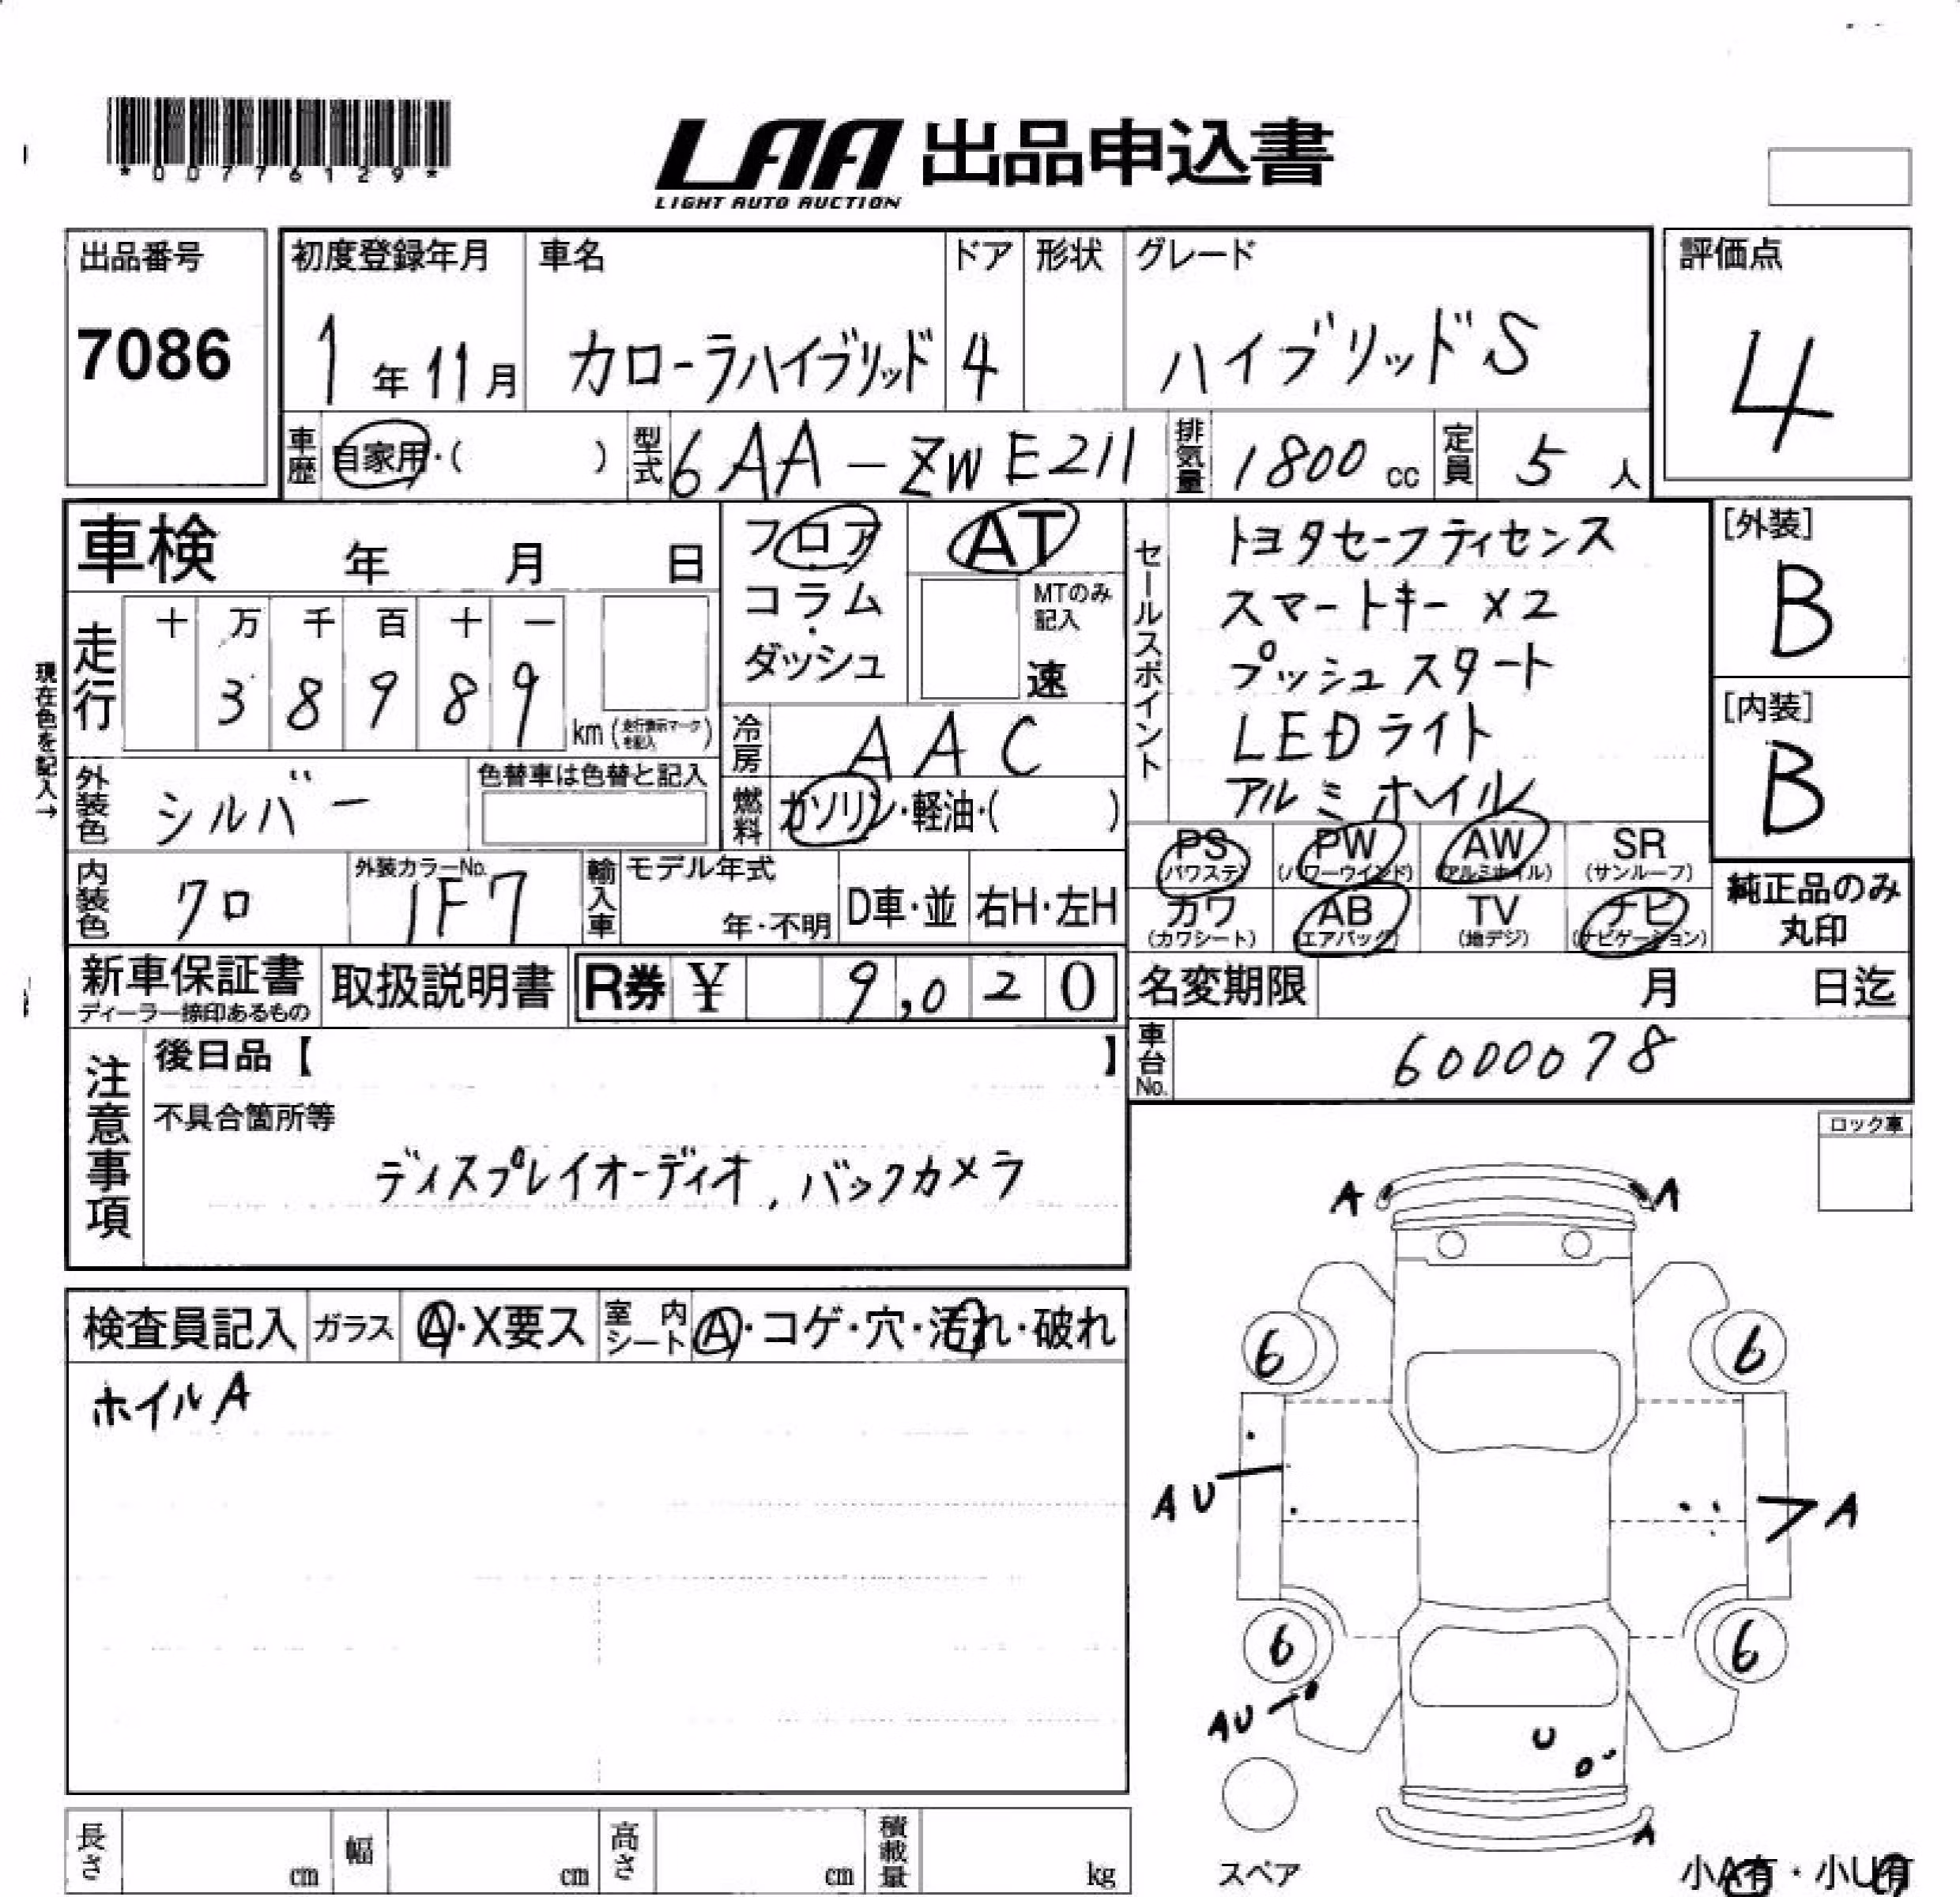 *00776129*
LAA 出品申込書
LIGHT AUTO AUCTION
出品番号
7086
初度登録年月
1年11月
車名
カローラハイブリッド
ドア
4
形状
グレード
ハイブリッドS
評価点
4
車歴
自家用・( )
型式
6AA-ZWE211
排気量
1800cc
定員
5人
車検 年 月 日
フロア
・
コラム
・
ダッシュ
AT
MTのみ
記入
速
セールスポイント
トヨタセーフティセンス
スマートキー×2
プッシュスタート
LEDライト
アルミホイル
[外装]
B
[内装]
B
現在色を記入→
走行
十 万 千 百 十 一
3 8 9 8 9
km (走行表示マークを記入)
冷房
AAC
燃料
ガソリン・軽油・( )
外装色
シルバー
色替車は色替と記入
PS
(パワステ)
PW
(パワーウインド)
AW
(アルミホイル)
SR
(サンルーフ)
カワ
(カワシート)
AB
(エアバッグ)
TV
(地デジ)
ナビ
(ナビゲーション)
純正品のみ
丸印
内装色
クロ
外装カラーNo.
1F7
輸入車
モデル年式
年・不明
D車・並
右H・左H
新車保証書
ディーラー捺印あるもの
取扱説明書
R券 ¥ 9,020
名変期限 月 日迄
車台No.
6000078
注意事項
後日品【 】
不具合箇所等
ディスプレイオーディオ,バックカメラ
ロック車
検査員記入
ガラス
A・X要ス
室内シート
A・コゲ・穴・汚れ・破れ
ホイルA
A A
6 6
AU
A
6 6
AU
U
A
スペア
小A有・小U有
長さ cm
幅 cm
高さ cm
積載量 kg